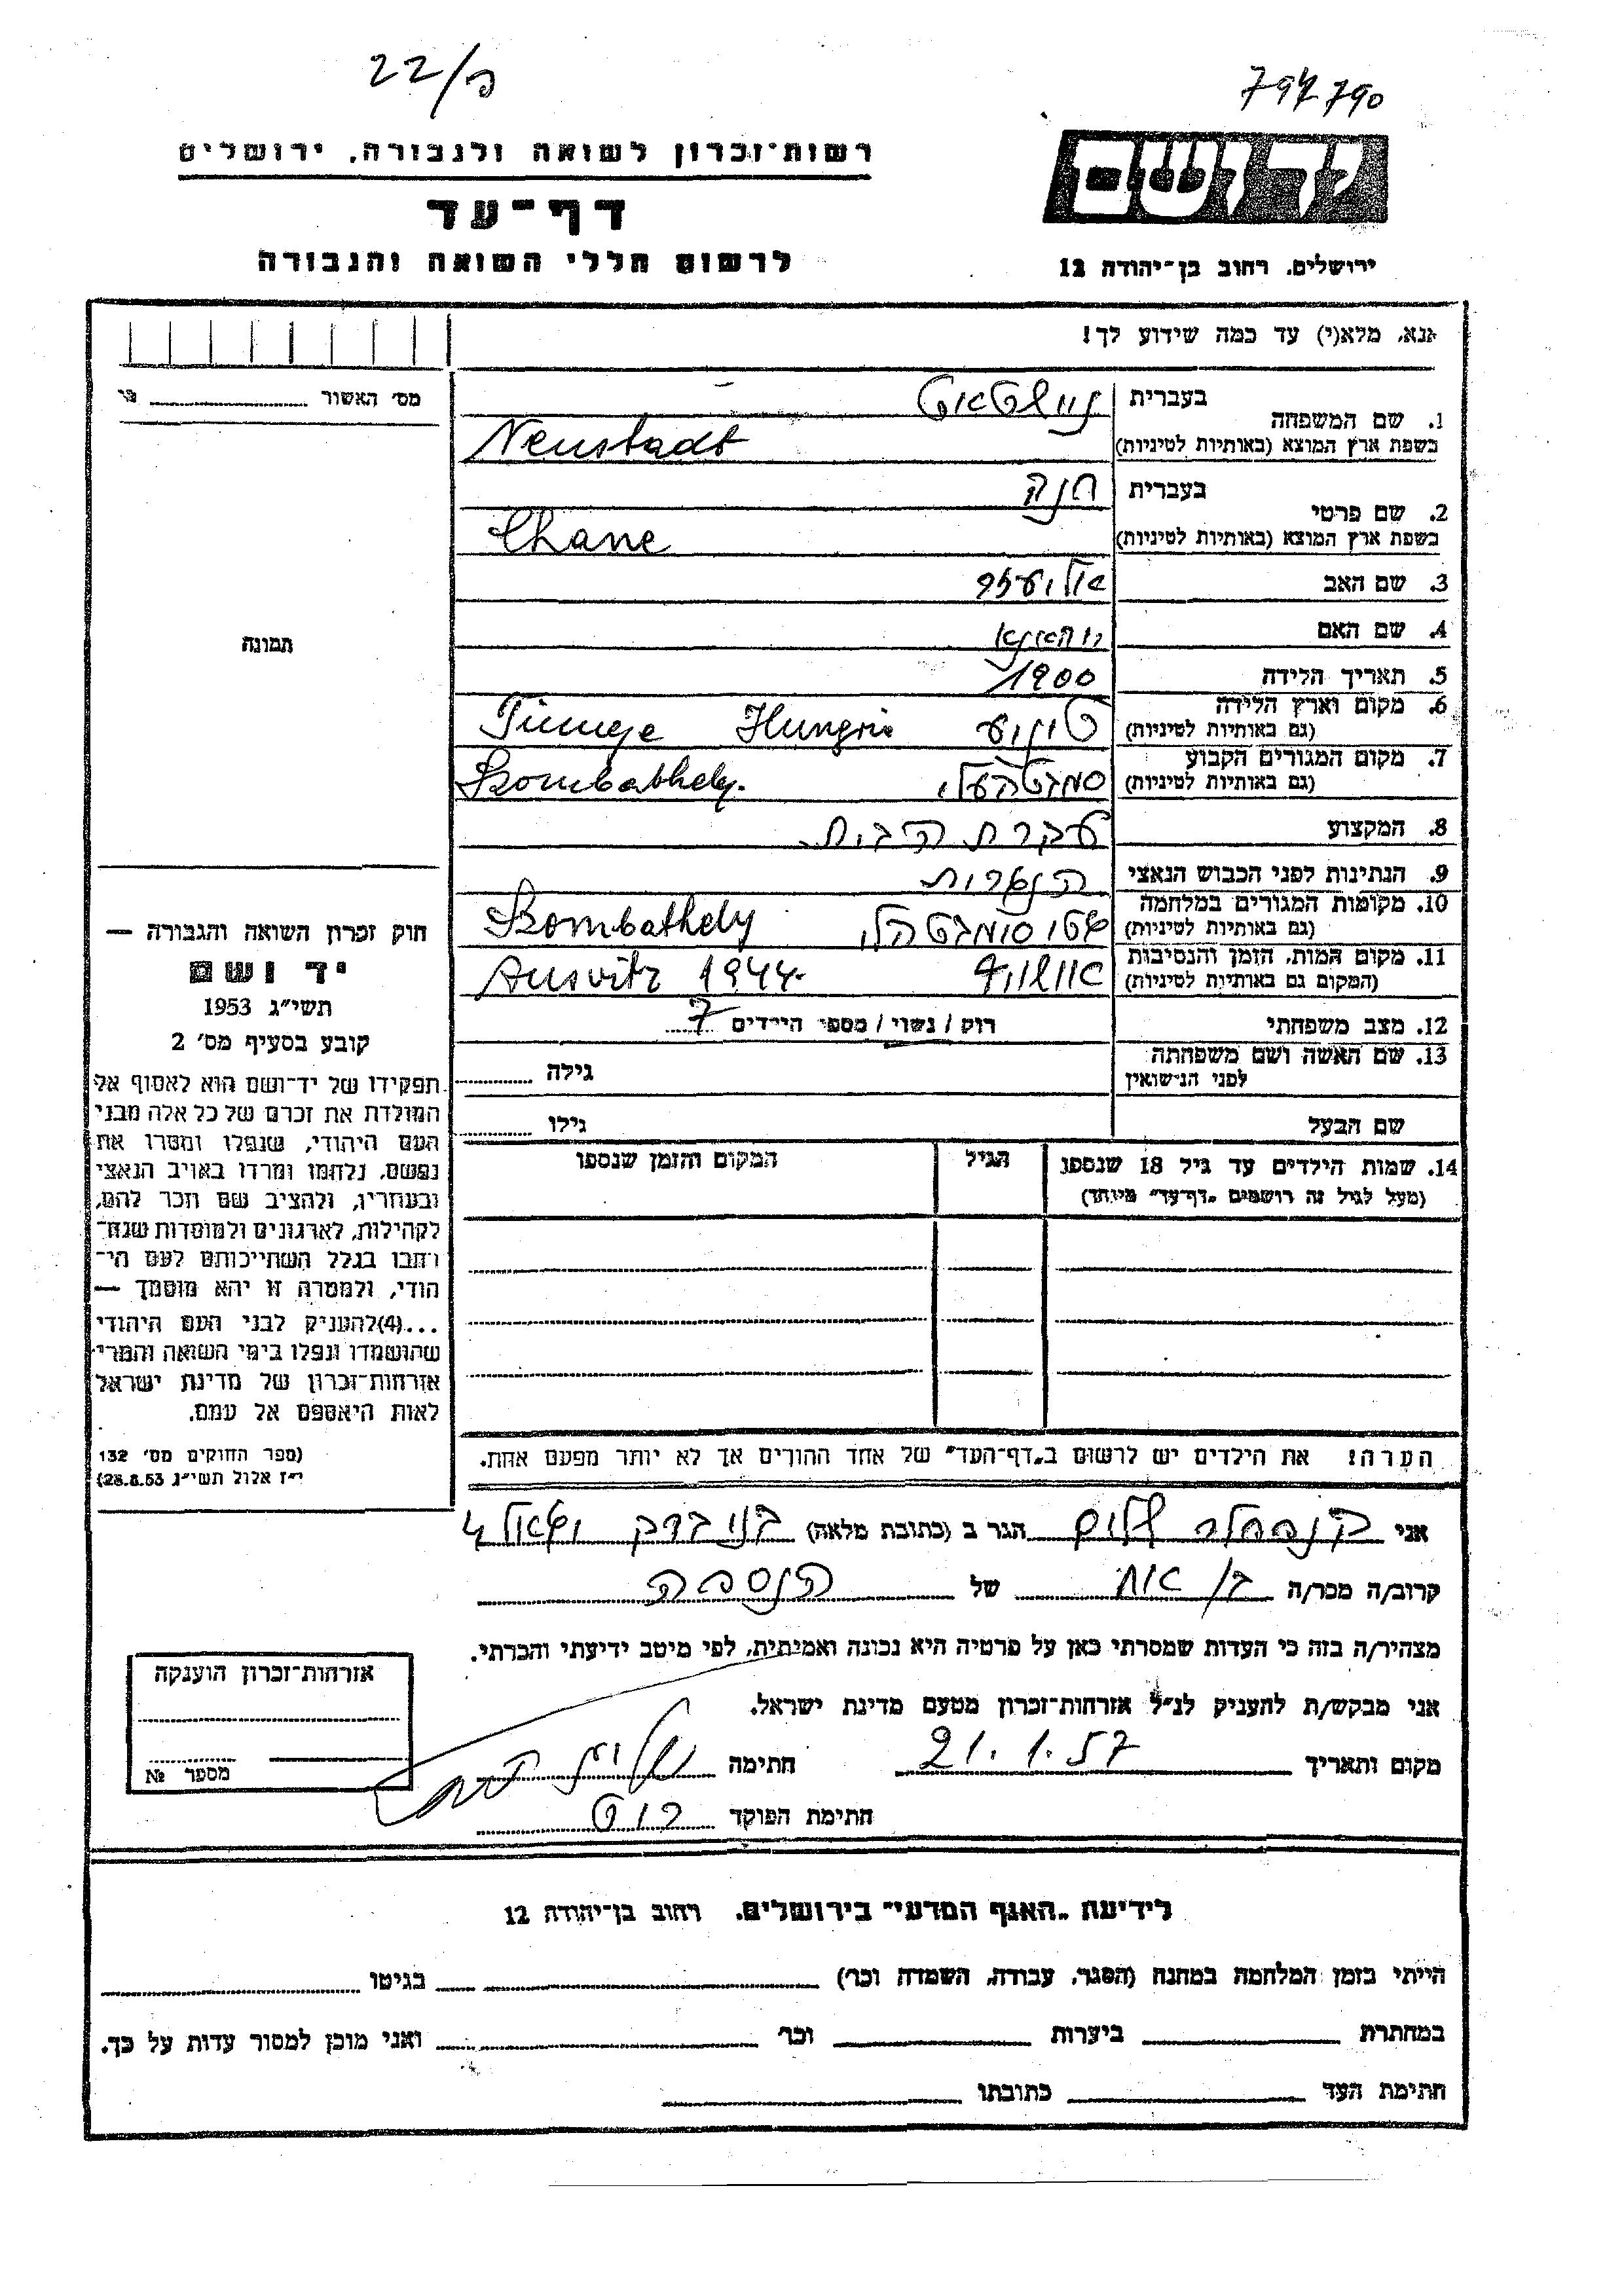 22/פ
794790
רשות־זכרון לשואה ולגבורה, ירושלים
דף־עד
לרשום חללי השואה והגבורה
יד ושם
ירושלים, רחוב בן־יהודה 12
אנא, מלא(י) עד כמה שידוע לך!
מס׳ האשור
1. שם המשפחה
בעברית ניישטאט
בשפת ארץ המוצא (באותיות לטיניות) Neustadt
2. שם פרטי
בעברית חנה
בשפת ארץ המוצא (באותיות לטיניות) Chane
3. שם האב אליעזר
4. שם האם
5. תאריך הלידה 1900
6. מקום וארץ הלידה
(גם באותיות לטיניות) Hungria
7. מקום המגורים הקבוע
(גם באותיות לטיניות) סמבטהעלי Szombathely.
8. המקצוע עקרת הבית
9. הנתינות לפני הכבוש הנאצי הונגרית
10. מקומות המגורים במלחמה
(גם באותיות לטיניות) גטו סומבטהלי Szombathely
11. מקום המות, הזמן והנסיבות
(המקום גם באותיות לטיניות) אושויץ Ausvitz 1944
12. מצב משפחתי רווק / נשוי / מספר הילדים 7
13. שם האשה ושם משפחתה
לפני הנישואין
גילה
שם הבעל
גילו
14. שמות הילדים עד גיל 18 שנספו
(מעל לגיל זה רושמים „דף־עד״ מיוחד)
הגיל
המקום והזמן שנספו
הערה: את הילדים יש לרשום ב„דף־העד״ של אחד ההורים אך לא יותר מפעם אחת.
תמונה
חוק זכרון השואה והגבורה —
יד ושם
תשי״ג 1953
קובע בסעיף מס׳ 2
תפקידו של יד־ושם הוא לאסוף אל
המולדת את זכרם של כל אלה מבני
העם היהודי, שנפלו ומסרו את
נפשם, נלחמו ומרדו באויב הנאצי
ובעוזריו, ולהציב שם וזכר להם,
לקהילות, לארגונים ולמוסדות שנח־
רבו בגלל השתייכותם לעם הי־
הודי, ולמטרה זו יהא מוסמך —
...(4)להעניק לבני העם היהודי
שהושמדו ונפלו בימי השואה והמרי
אזרחות־זכרון של מדינת ישראל
לאות היאספם אל עמם.
(ספר החוקים מס׳ 132
י״ז אלול תשי״ג 28.8.53)
אני שלום הגר ב (כתובת מלאה) בני ברק
קרוב/ה מכר/ה בן אחות של הנספה
מצהיר/ה בזה כי העדות שמסרתי כאן על פרטיה היא נכונה ואמיתית, לפי מיטב ידיעתי והכרתי.
אני מבקש/ת להעניק לנ״ל אזרחות־זכרון מטעם מדינת ישראל.
מקום ותאריך 21.1.57 חתימה
חתימת הפוקד
אזרחות־זכרון הוענקה
מספר №
לידיעת „האגף המדעי״ בירושלים, רחוב בן־יהודה 12
הייתי בזמן המלחמה במחנה (הסגר, עבודה, השמדה וכו׳) בגיטו
במחתרת ביערות וכו׳ ואני מוכן למסור עדות על כך.
חתימת העד כתובתו